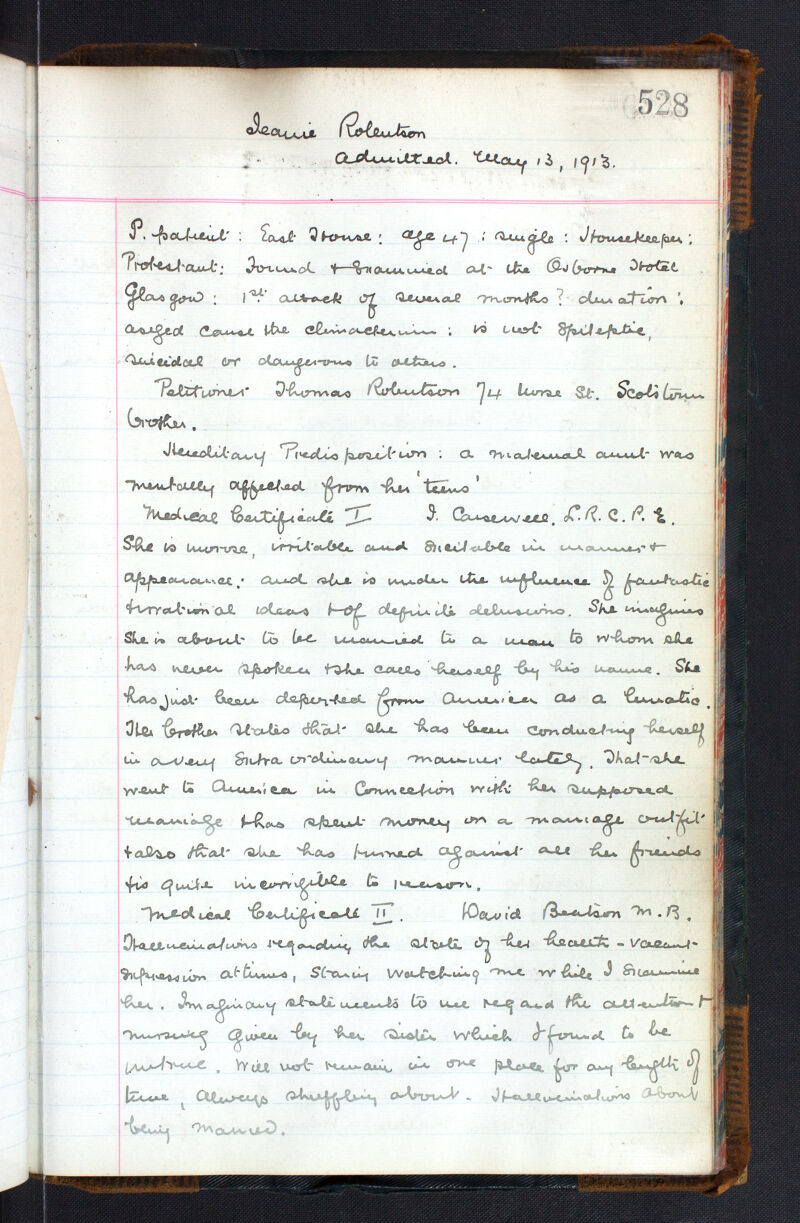 528
Jeanie Robertson
Admitted. May 13, 1913.
P. patient : East House : age 47 : single : Housekeeper :
Protestant : Found & Examined at the Osborne Hotel
Glasgow : 1st attack of several months? duration :
asseged cause the climacterium : is not Epileptic,
suicidal or dangerous to others.
Petitioner Thomas Robertson 74 St. Scotstoun
brother.
Hereditary Predisposition : a maternal aunt was
mentally affected from her 'teens'
Medical Certificate I J. Carswell. L.R.C.P.E.
She is morose, irritable and Excitable in manner &
appearance : and she is under the influence of fantastic
& irrational ideas & of definite delusions. She imagines
She is about to be married to a man to whom she
has never spoken & she calls herself by his name. She
has just been deported from America as a lunatic.
Her brother states that she has been conducting herself
in a very Extra ordinary manner lately. That she
went to America in Connection with her supposed
marriage & has spent money on a marriage outfit
& also that she has turned against all her friends
& is quite incorrigible to reason.
Medical Certificate II. David Beatson M.B.
Hallucinations regarding the state of her health - vacant
Expression at times, Staring watching me while I Examine
her. Imaginary statements to me regard the attention &
nursing given by her sister which I found to be
untrue. Will not remain in one place for any length of
time, Always shuffling about. Hallucinations about
being married.